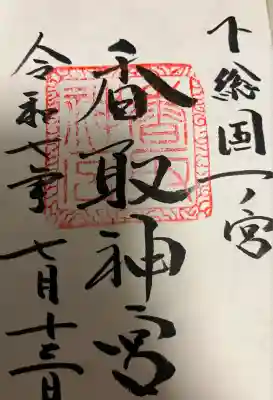 下総国一ノ宮
香取神宮
令和七年七月十三日